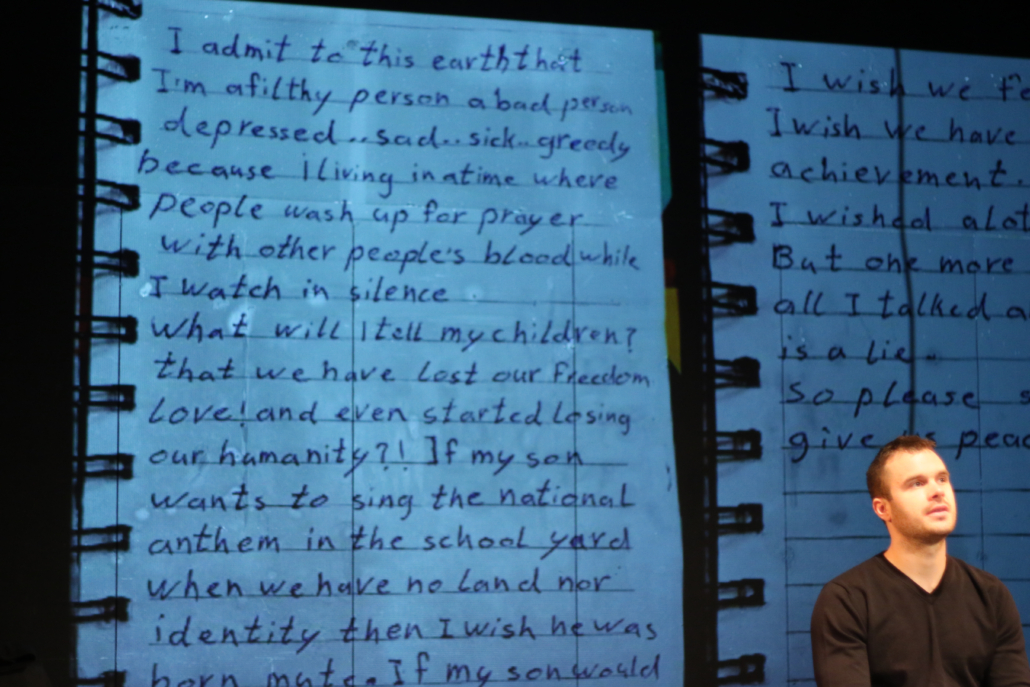 I admit to this earththat
I'm afilthy person abad person
depressed..sad..sick..greedy
because iliving inatime where
people wash up for prayer
with other people's blood while
I watch in silence
What will I tell mychildren?
that we have lost our freedom
Love! and even started losing
our humanity?! If my son
wants to sing the national
anthem in the school yard
when we have no land nor
identity then I wish he was
born mute. If my son would
I wish we
I wish we have
achievement.
I wished
But one more
all I talked
is a lie.
so please
give us